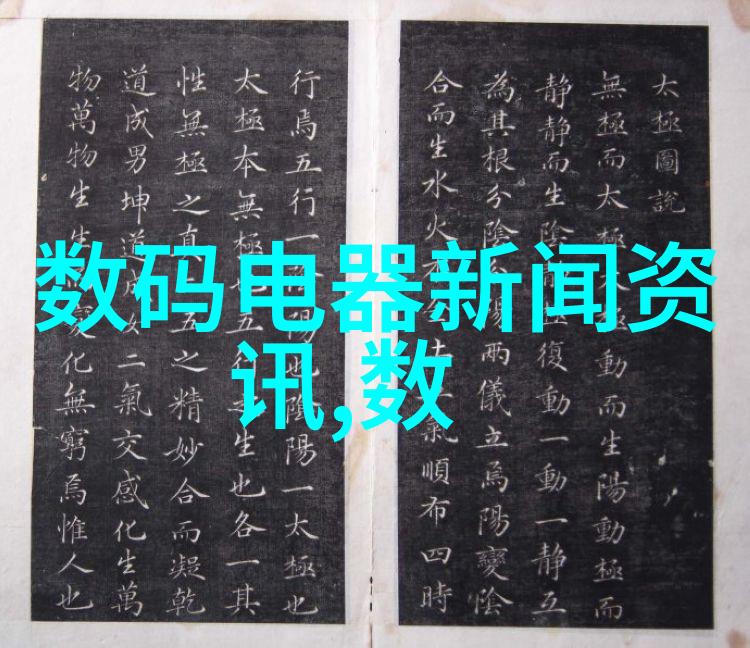 数码电器新闻资
讯,数
太極圖說
無極而太極極動而生陽動極而
静静而生陰復動一動一静互
為其根分陰陽兩儀立焉陽變陰
合而生水火氣順布四時
行焉五行一陽也陰陽一太極也
太極本無極五行生也各一其
性無極之真五之精妙合而凝乾
道成男坤道成女二氣交感化生萬
物萬物生生變化無窮焉惟人也